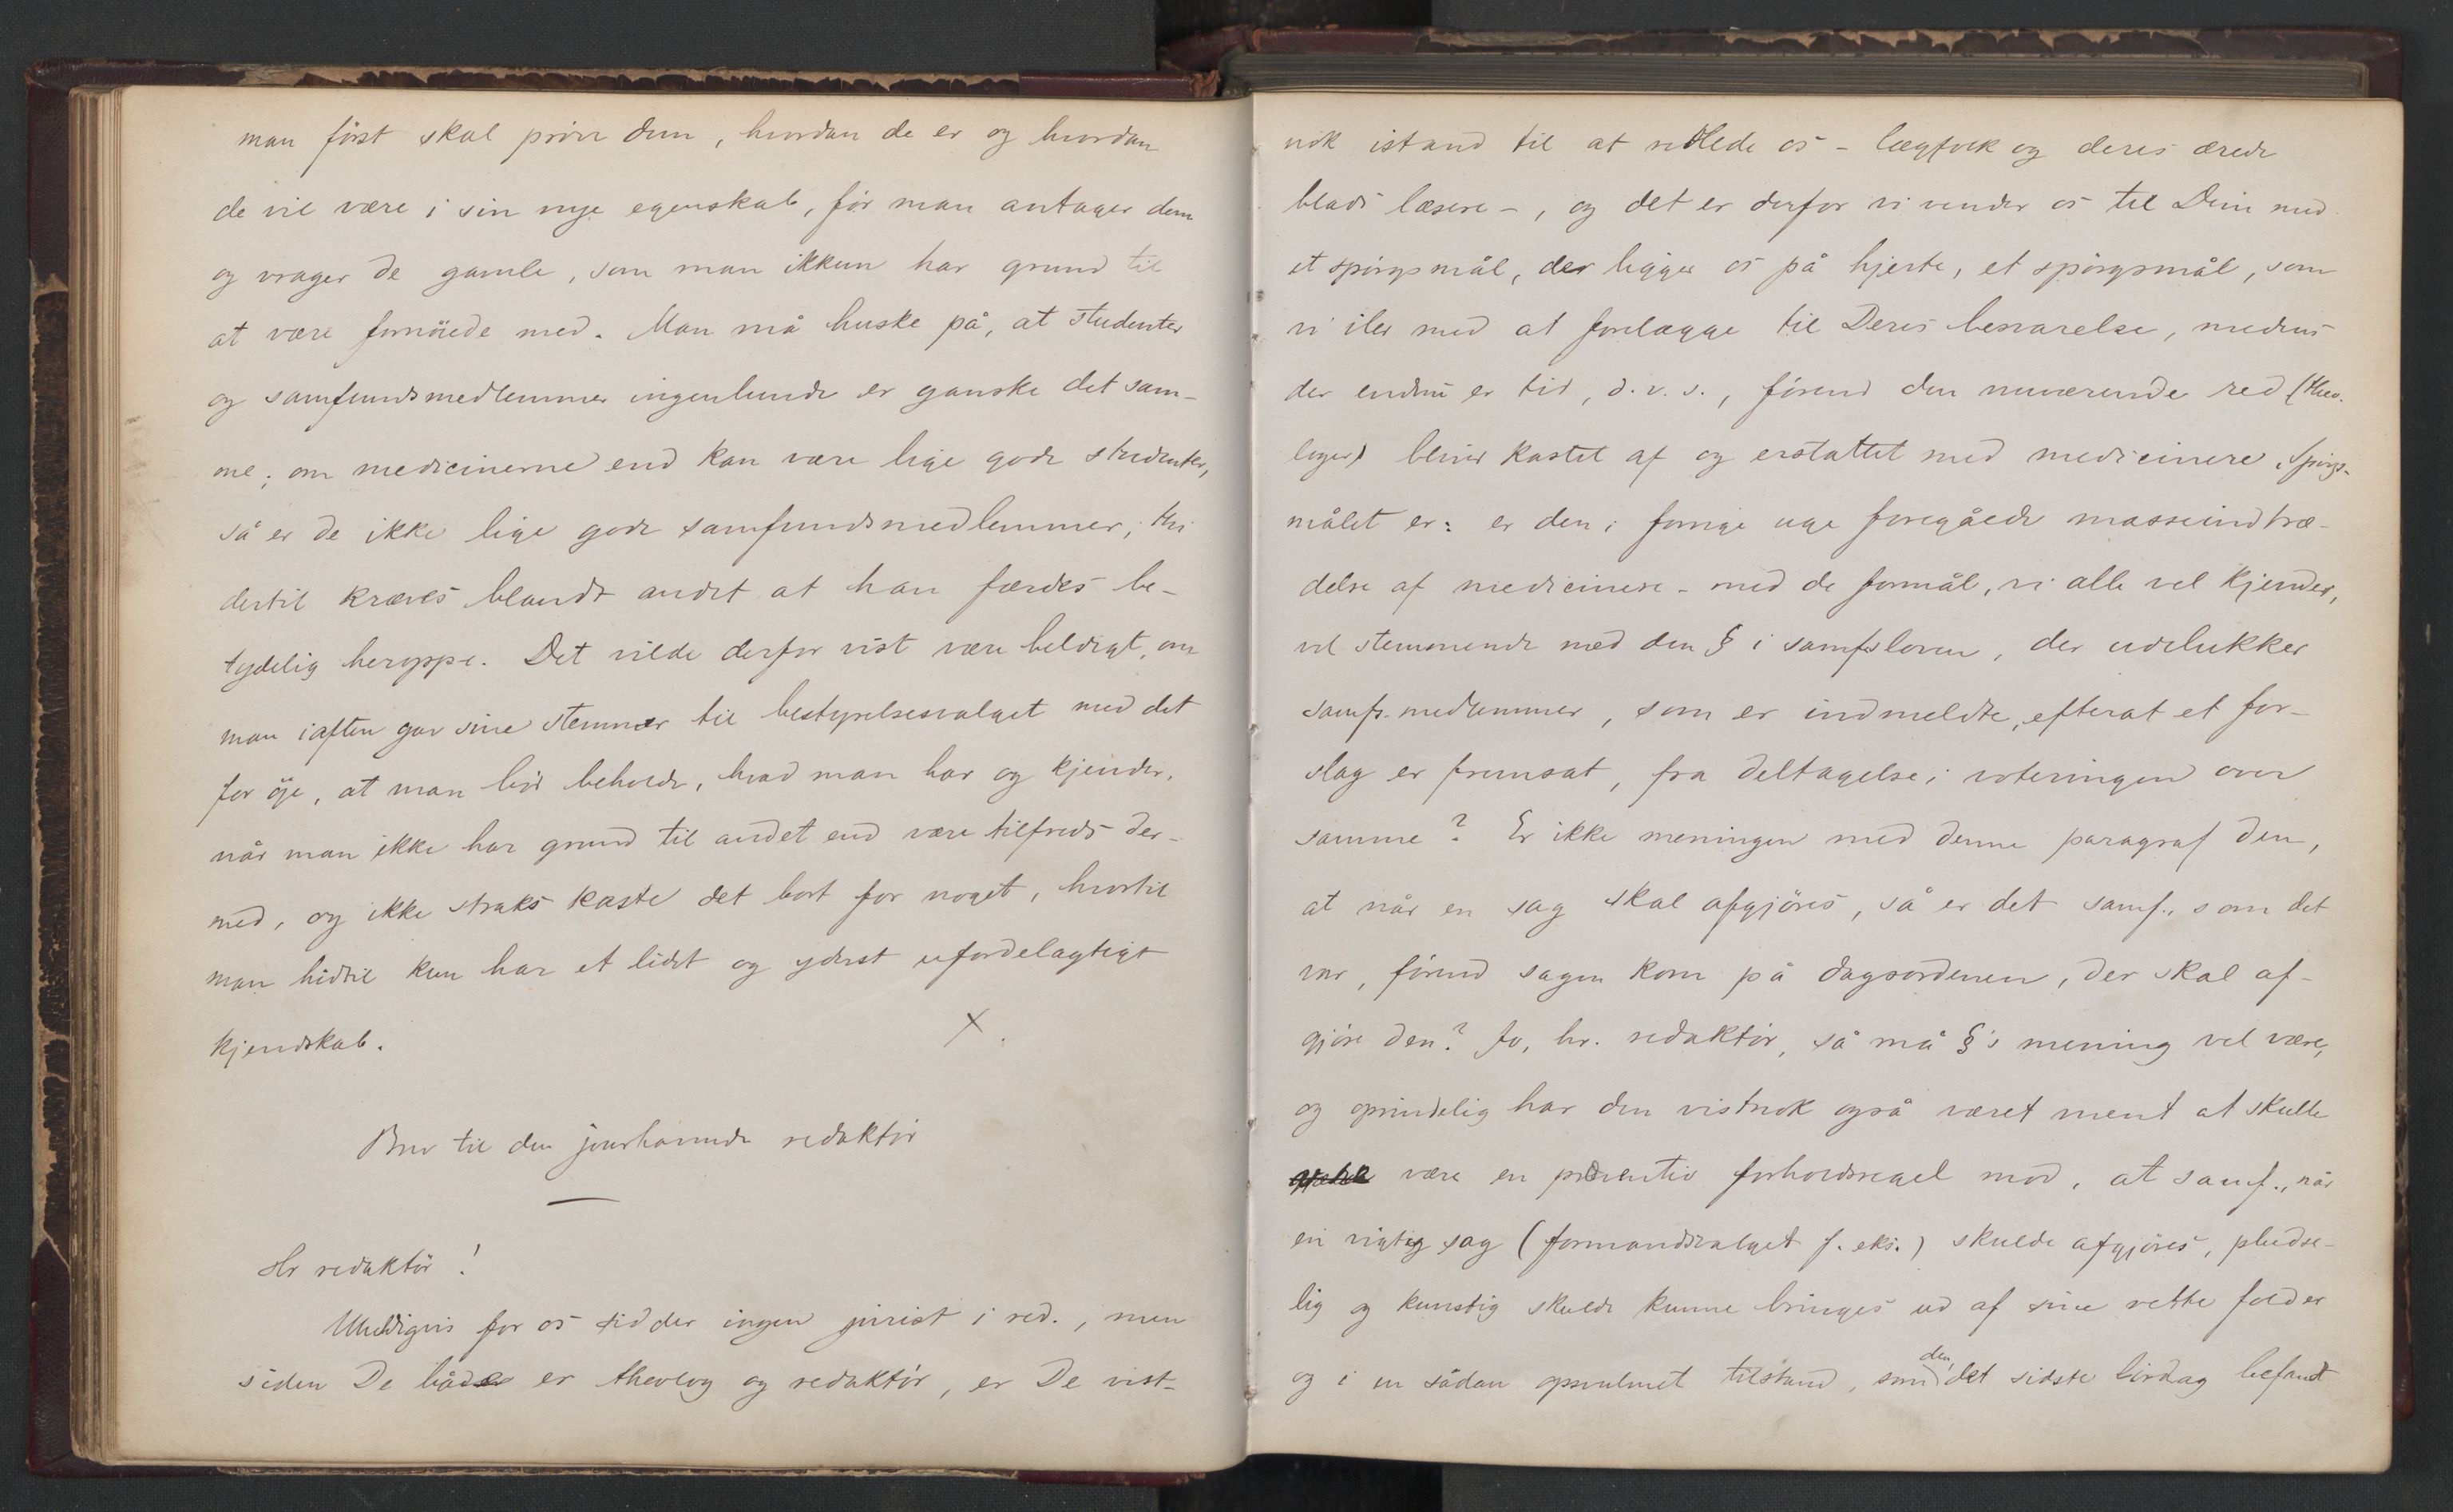 man först skal pröve dem, hvordan de er og hvordan
de vil være i sin nye egenskab, för man antager dem
og vrager de gamle, som man ikkun har grund til
at være fornöiede med. Man må huske på, at studenter
og samfundsmedlemmer ingenlunde er ganske det sam-
me; om medicinerne end kan være lige gode studenter,
så er de ikke lige gode samfundsmedlemmer; thi
dertil kræves blandt andet at han færdes be-
tydelig heroppe. Det vilde derfor vist være heldigt, om
man iaften gav sine stemmer til bestyrelsesvalget med det
for öje, at man bör beholde, hvad man har og kjender,
når man ikke har grund til andet end være tilfreds der-
med, og ikke straks kaste det bort for noget, hvortil
man hidtil kun har et lidet og yderst ufordelagtigt
kjendskab.
X.
Brev til den jourhavende redaktör
Hr redaktör!
Uheldigvis for os sidder ingen jurist i red., men
siden De både er theolog og redaktör, er De vist-
nok istand til at veilede os - lægfolk og deres ærede
blads læsere -, og det er derfor vi vender os til Dem med
et spörgsmål, der ligger os på hjerte, et spörgsmål, som
vi iler med at forelægge til Deres besvarelse, medens
der endnu er tid, d.v.s., förend den nuværende red (theo-
loger) bliver kastet af og erstattet med medicinere. Spörgs-
målet er: er den i forrige uge foregåede masseindtræ-
delse af medicinere - med de formål, vi alle vel kjender,
vel stemmende med den § i samfsloven, der udelukker
samfs.medlemmer, som er indmeldte, efterat et for-
slag er fremsat, fra deltagelse i voteringen over
samme? Er ikke meningen med denne paragraf den,
at når en sag skal afgjöres, så er det samf., som det
var, förend sagen kom på dagsordenen, der skal af-
gjöre den? Jo, hr. redaktör, så må §'s mening vel være,
og oprindelig har den vistnok også været ment at skulle
være en præventiv forholdsregel mod, at samf., når
en vigtig sag (formandsvalget f. eks.) skulde afgjöres, pludse-
lig og kunstig skulde kunne bringes ud af sine rette folder
og i en sådan opsvulmet tilstand, som den det sidste lördag befandt